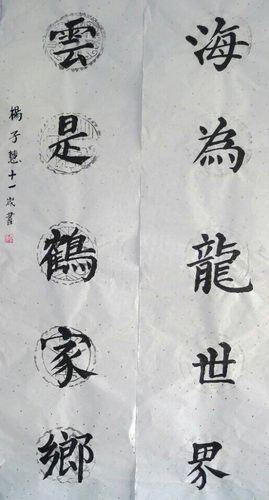 海為龍世界
雲是鶴家鄉
楊子慧十一歲書